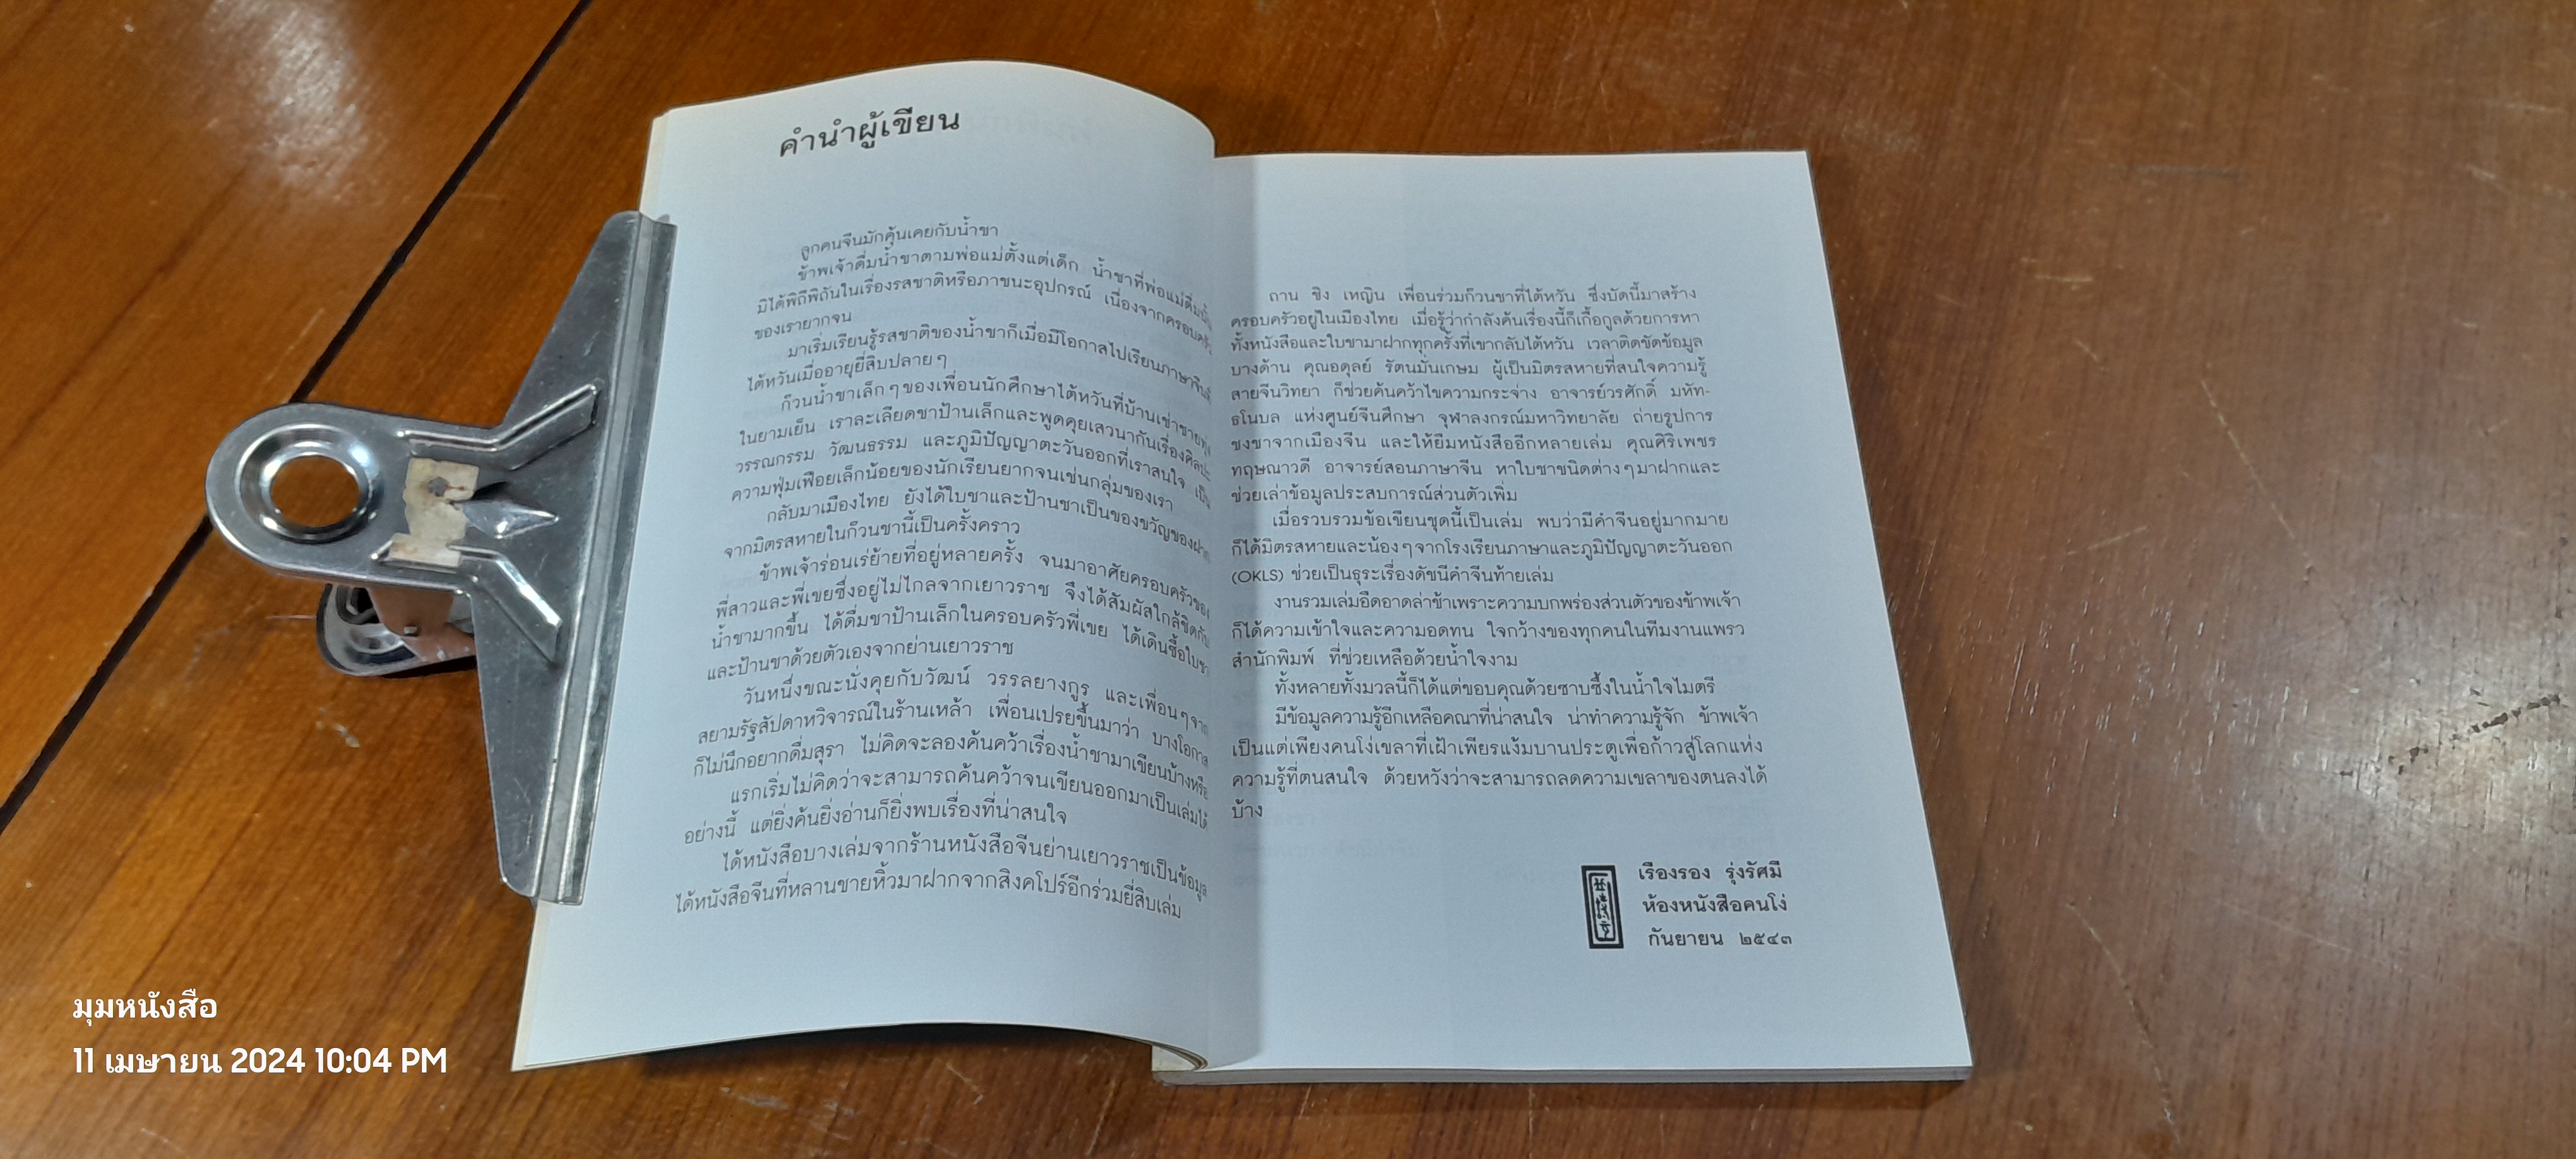 คำนำผู้เขียน
ลูกคนจีนมักคุ้นเคยกับน้ำชา
ข้าพเจ้าดื่มน้ำชาตามพ่อแม่ตั้งแต่เด็ก น้ำชาที่พ่อแม่ดื่มนั้น
มิได้พิถีพิถันในเรื่องรสชาติหรือภาชนะอุปกรณ์ เนื่องจากครอบครัว
ของเรายากจน
มาเริ่มเรียนรู้รสชาติของน้ำชาก็เมื่อมีโอกาสไปเรียนภาษาจีนที่
ไต้หวันเมื่ออายุยี่สิบปลายๆ
ก๊วนน้ำชาเล็กๆของเพื่อนนักศึกษาไต้หวันที่บ้านเช่าชายทุ่ง
ในยามเย็น เราละเลียดชาป้านเล็กและพูดคุยเสวนากันเรื่องศิลปะ
วรรณกรรม วัฒนธรรม และภูมิปัญญาตะวันออกที่เราสนใจ เป็น
ความฟุ่มเฟือยเล็กน้อยของนักเรียนยากจนเช่นกลุ่มของเรา
กลับมาเมืองไทย ยังได้ใบชาและป้านชาเป็นของขวัญของฝาก
จากมิตรสหายในก๊วนชานี้เป็นครั้งคราว
ข้าพเจ้าร่อนเร่ย้ายที่อยู่หลายครั้ง จนมาอาศัยครอบครัวของ
พี่สาวและพี่เขยซึ่งอยู่ไม่ไกลจากเยาวราช จึงได้สัมผัสใกล้ชิดกับ
น้ำชามากขึ้น ได้ดื่มชาป้านเล็กในครอบครัวพี่เขย ได้เดินซื้อใบชา
และป้านชาด้วยตัวเองจากย่านเยาวราช
วันหนึ่งขณะนั่งคุยกับวัฒน์ วรรลยางกูร และเพื่อนๆจาก
สยามรัฐสัปดาหวิจารณ์ในร้านเหล้า เพื่อนเปรยขึ้นมาว่า บางโอกาส
ก็ไม่นึกอยากดื่มสุรา ไม่คิดจะลองค้นคว้าเรื่องน้ำชามาเขียนบ้างหรือ
แรกเริ่มไม่คิดว่าจะสามารถค้นคว้าจนเขียนออกมาเป็นเล่มได้
อย่างนี้ แต่ยิ่งค้นยิ่งอ่านก็ยิ่งพบเรื่องที่น่าสนใจ
ได้หนังสือบางเล่มจากร้านหนังสือจีนย่านเยาวราชเป็นข้อมูล
ได้หนังสือจีนที่หลานชายหิ้วมาฝากจากสิงคโปร์อีกร่วมยี่สิบเล่ม
ถาน ชิง เหญิน เพื่อนร่วมก๊วนชาที่ไต้หวัน ซึ่งบัดนี้มาสร้าง
ครอบครัวอยู่ในเมืองไทย เมื่อรู้ว่ากำลังค้นเรื่องนี้ก็เกื้อกูลด้วยการหา
ทั้งหนังสือและใบชามาฝากทุกครั้งที่เขากลับไต้หวัน เวลาติดขัดข้อมูล
บางด้าน คุณอดุลย์ รัตนมั่นเกษม ผู้เป็นมิตรสหายที่สนใจความรู้
สายจีนวิทยา ก็ช่วยค้นคว้าไขความกระจ่าง อาจารย์วรศักดิ์ มหัท-
ธโนบล แห่งศูนย์จีนศึกษา จุฬาลงกรณ์มหาวิทยาลัย ถ่ายรูปการ
ชงชาจากเมืองจีน และให้ยืมหนังสืออีกหลายเล่ม คุณศิริเพชร
ทฤษณาวดี อาจารย์สอนภาษาจีน หาใบชาชนิดต่างๆมาฝากและ
ช่วยเล่าข้อมูลประสบการณ์ส่วนตัวเพิ่ม
เมื่อรวบรวมข้อเขียนชุดนี้เป็นเล่ม พบว่ามีคำจีนอยู่มากมาย
ก็ได้มิตรสหายและน้องๆจากโรงเรียนภาษาและภูมิปัญญาตะวันออก
(OKLS) ช่วยเป็นธุระเรื่องดัชนีคำจีนท้ายเล่ม
งานรวมเล่มอืดอาดล่าช้าเพราะความบกพร่องส่วนตัวของข้าพเจ้า
ก็ได้ความเข้าใจและความอดทน ใจกว้างของทุกคนในทีมงานแพรว
สำนักพิมพ์ ที่ช่วยเหลือด้วยน้ำใจงาม
ทั้งหลายทั้งมวลนี้ก็ได้แต่ขอบคุณด้วยซาบซึ้งในน้ำใจไมตรี
มีข้อมูลความรู้อีกเหลือคณาที่น่าสนใจ น่าทำความรู้จัก ข้าพเจ้า
เป็นแต่เพียงคนโง่เขลาที่เฝ้าเพียรแง้มบานประตูเพื่อก้าวสู่โลกแห่ง
ความรู้ที่ตนสนใจ ด้วยหวังว่าจะสามารถลดความเขลาของตนลงได้
บ้าง
เรืองรอง รุ่งรัศมี
ห้องหนังสือคนโง่
กันยายน ๒๕๔๓
มุมหนังสือ
11 เมษายน 2024 10:04 PM